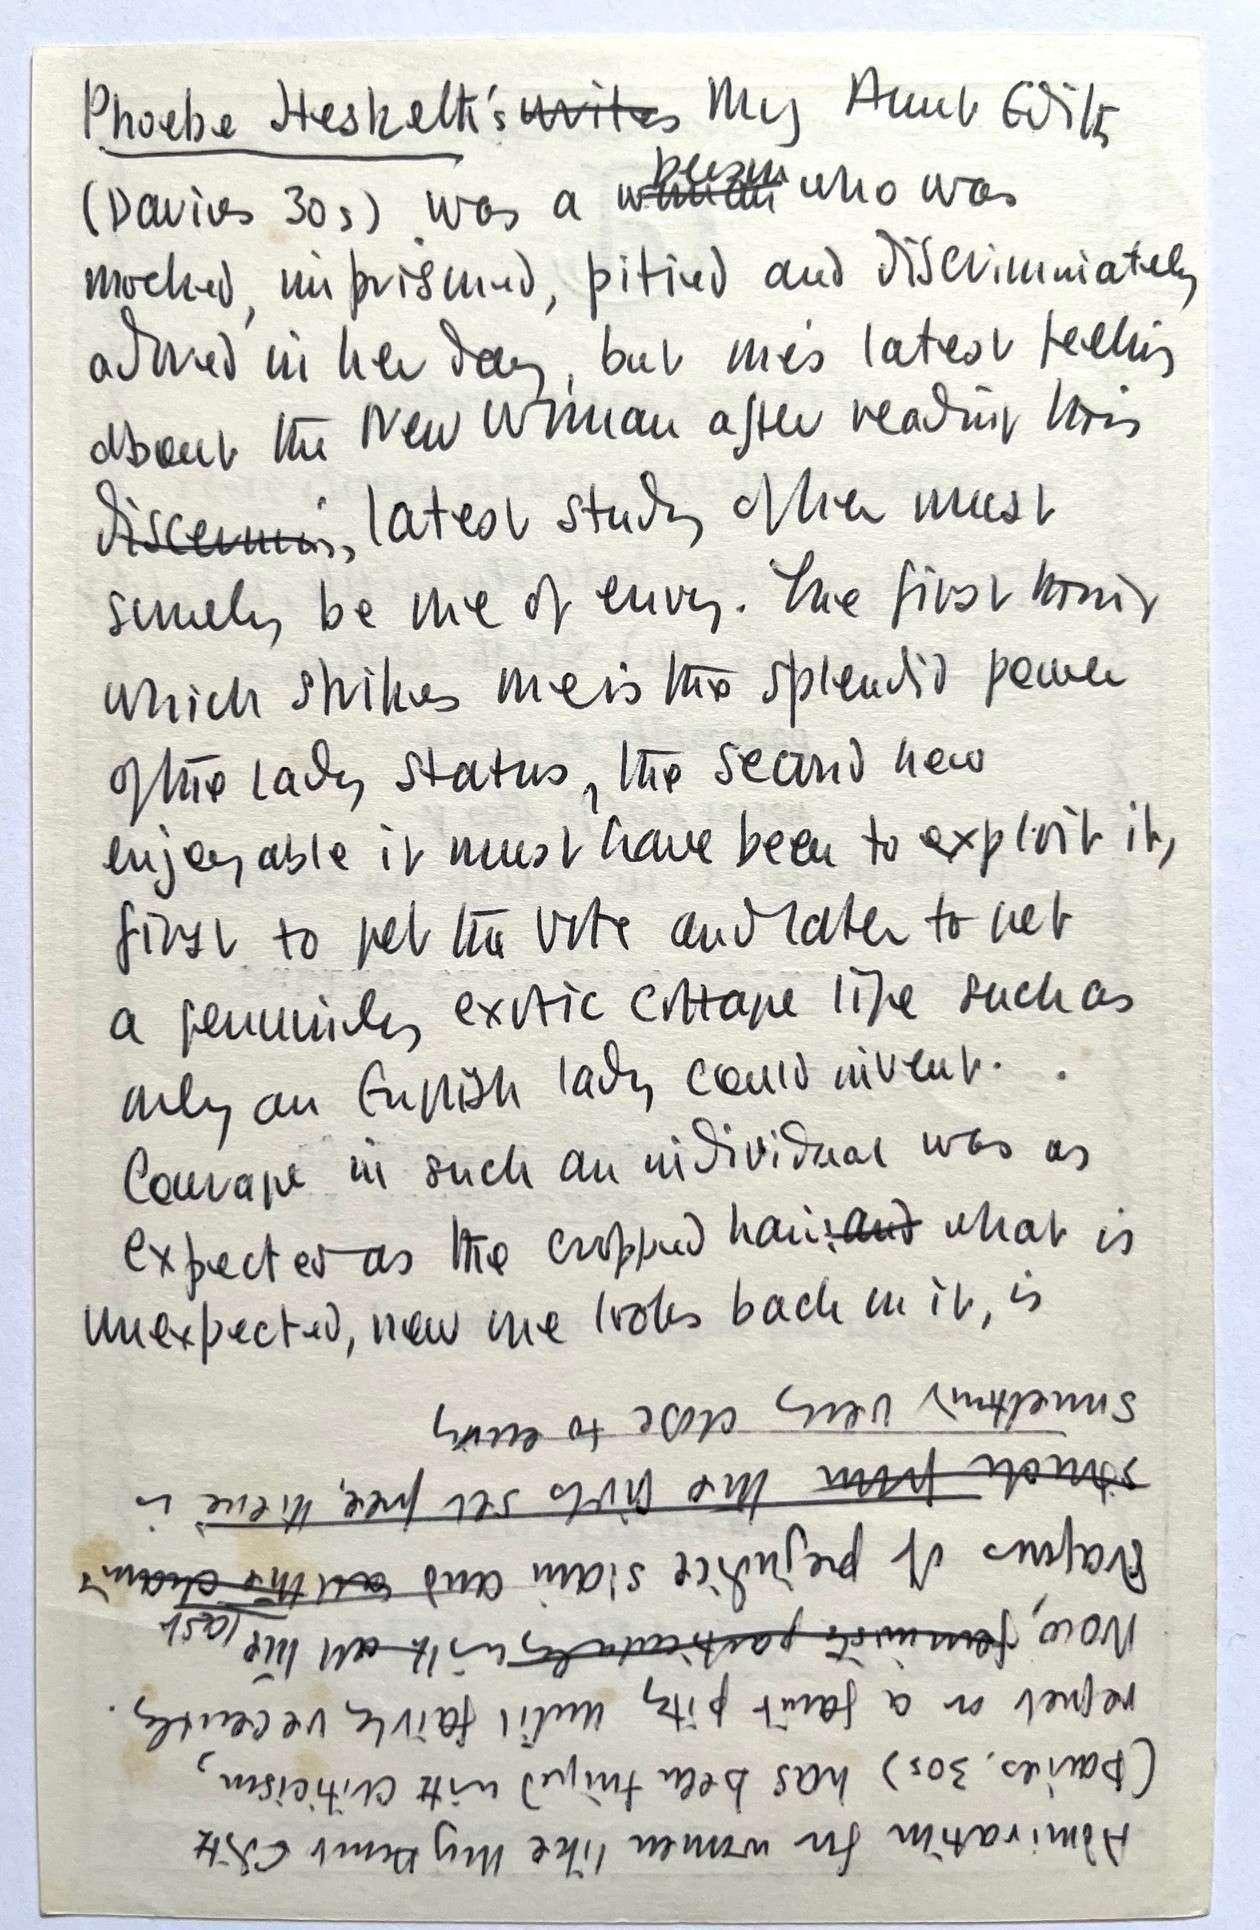 Phoebe Hesketh's writes My Aunt Edith
(Davies 30s) was a woman person who was
mocked, imprisoned, pitied and discriminately
adored in her day, but one's latest feeling
about the New Woman after reading this
discerning, latest study of her must
surely be one of envy. The first thing
which strikes me is the splendid power
of the lady status, the second how
enjoyable it must have been to exploit it,
first to get the vote and later to get
a genuinely exotic cottage life such as
only an English lady could invent.
Courage in such an individual was as
expected as the cropped hair: and what is
unexpected, now one looks back on it, is
Admiration for women like My Aunt Edith
(Davies. 30s) has been tinged with criticism,
regret or a faint pity until fairly recently.
Now, feminists particularly with all the last
dragons of prejudice slain and all the chains
struck from the girls set free, there is
something very close to envy